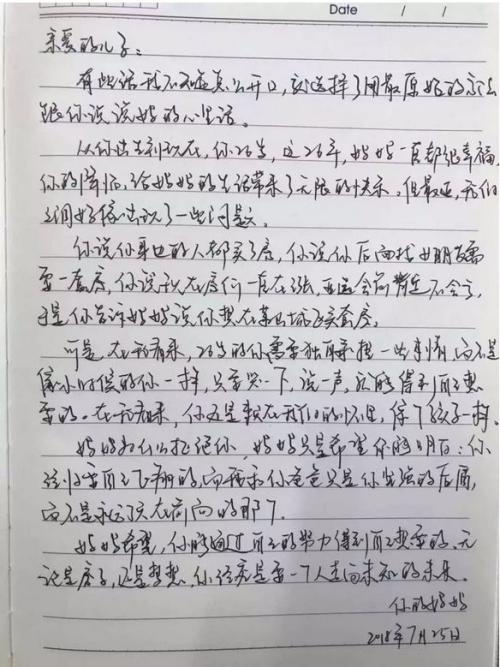 Date / /
亲爱的儿子:
有些话我不知道怎么开口,就选择了用最原始的方法
跟你说说妈妈的心里话。
从你出生到现在,你26岁,这26年,妈妈一直都很幸福,
你的降临,给妈妈的生活带来了无限的快乐。但最近,我们
之间好像出现了一些问题。
你说你身边的人都买了房,你说你后面找女朋友需
要一套房,你说现在房价一直在涨,
是你告诉妈妈说你想在某县城买套房。
可是,在我看来,26岁的你需要独自承担一些事情,而不是
像小时候的你一样,只要哭一下,说一声,就能得到自己想
要的。在我看来,你还是躲在我们的怀里,像个孩子一样。
妈妈为什么拒绝你,妈妈只是希望你能明白:你
终归要自己飞翔的,而我和你爸爸只是你坚强的后盾,
而不是永远顶在前面的那个。
妈妈希望,你能通过自己的努力得到自己想要的,无
论是房子,还是梦想,你终究是要一个人走向未知的未来。
你的妈妈
2018年7月25日